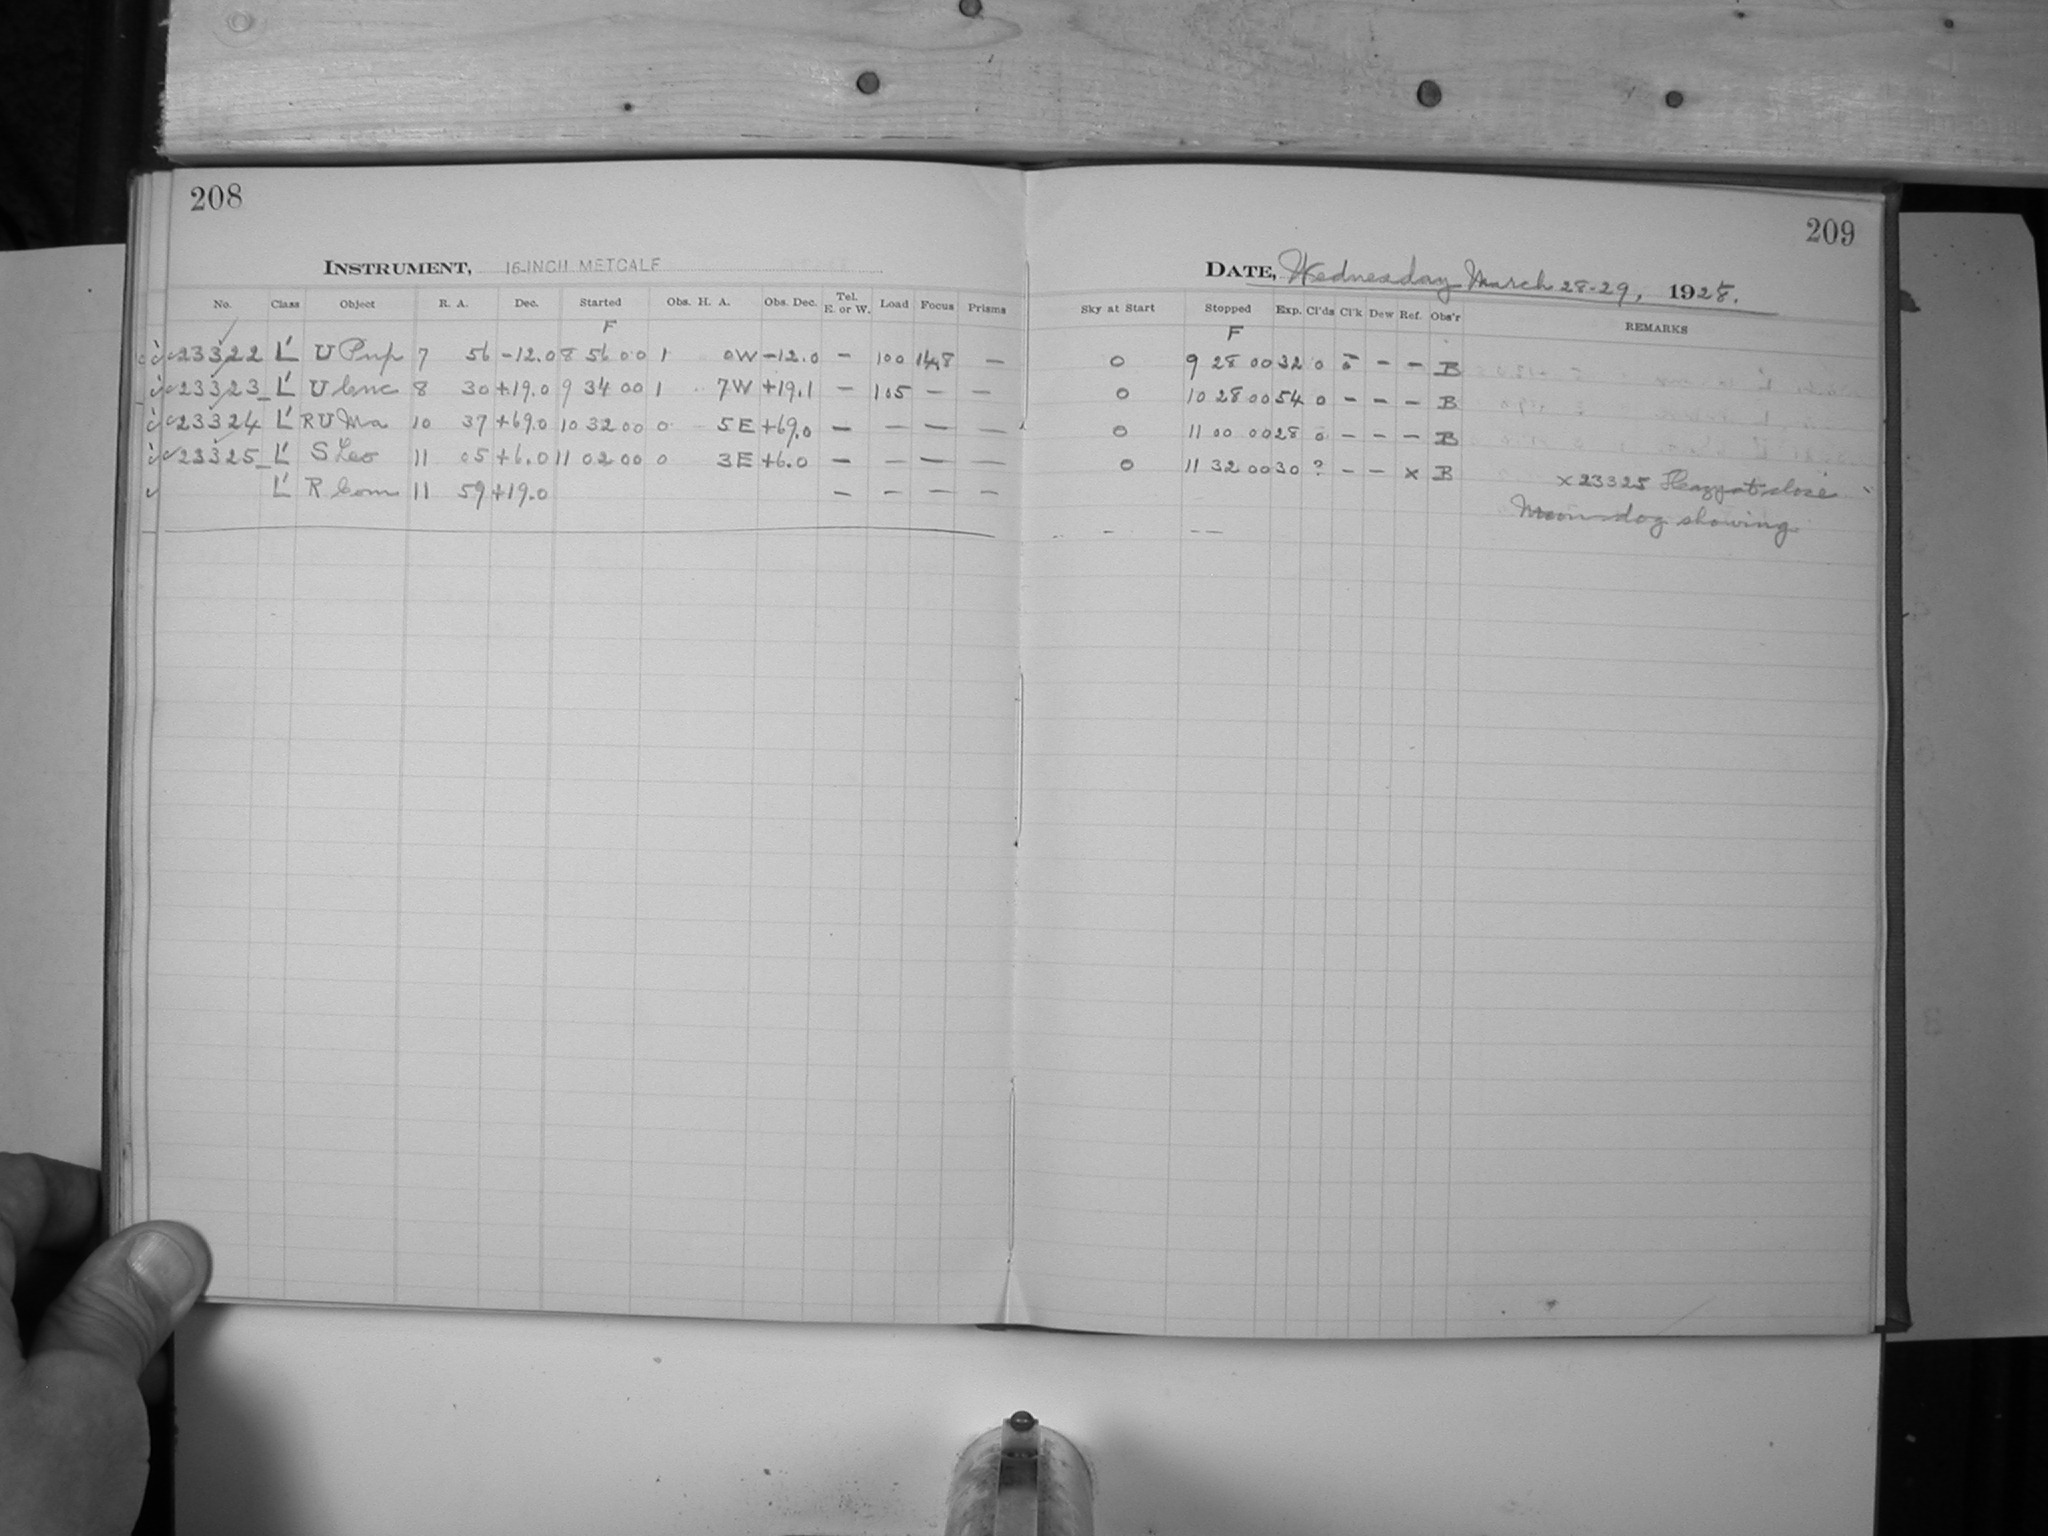 208
INSTRUMENT, 16-INCH METCALF
No. Class Object R. A. Dec. Started Obs. H. A. Obs. Dec. Tel. E. or W. Load Focus Prisms
F
23322 L' U Pup 7 56 -12.0 8 56 00 1 0W -12.0 - 100 14.8 —
23323 L' U Cnc 8 30 +19.0 9 34 00 1 7W +19.1 - 105 — —
23324 L' R U Ma 10 37 +69.0 10 32 00 0 5E +69.0 — — — —
23325 L' S Leo 11 05 +6.0 11 02 00 0 3E +6.0 — — — —
L' R Com 11 59 +19.0 — — — —
209
DATE, Wednesday March 28-29, 1928.
Sky at Start Stopped Exp. Cl'ds Cl'k Dew Ref. Obs'r REMARKS
F
0 9 28 00 32 0 - - B
0 10 28 00 54 0 - - - B
0 11 00 00 28 0 - - - B
0 11 32 00 30 ? - - x B
x 23325 Hazy at close
Moon-dog showing